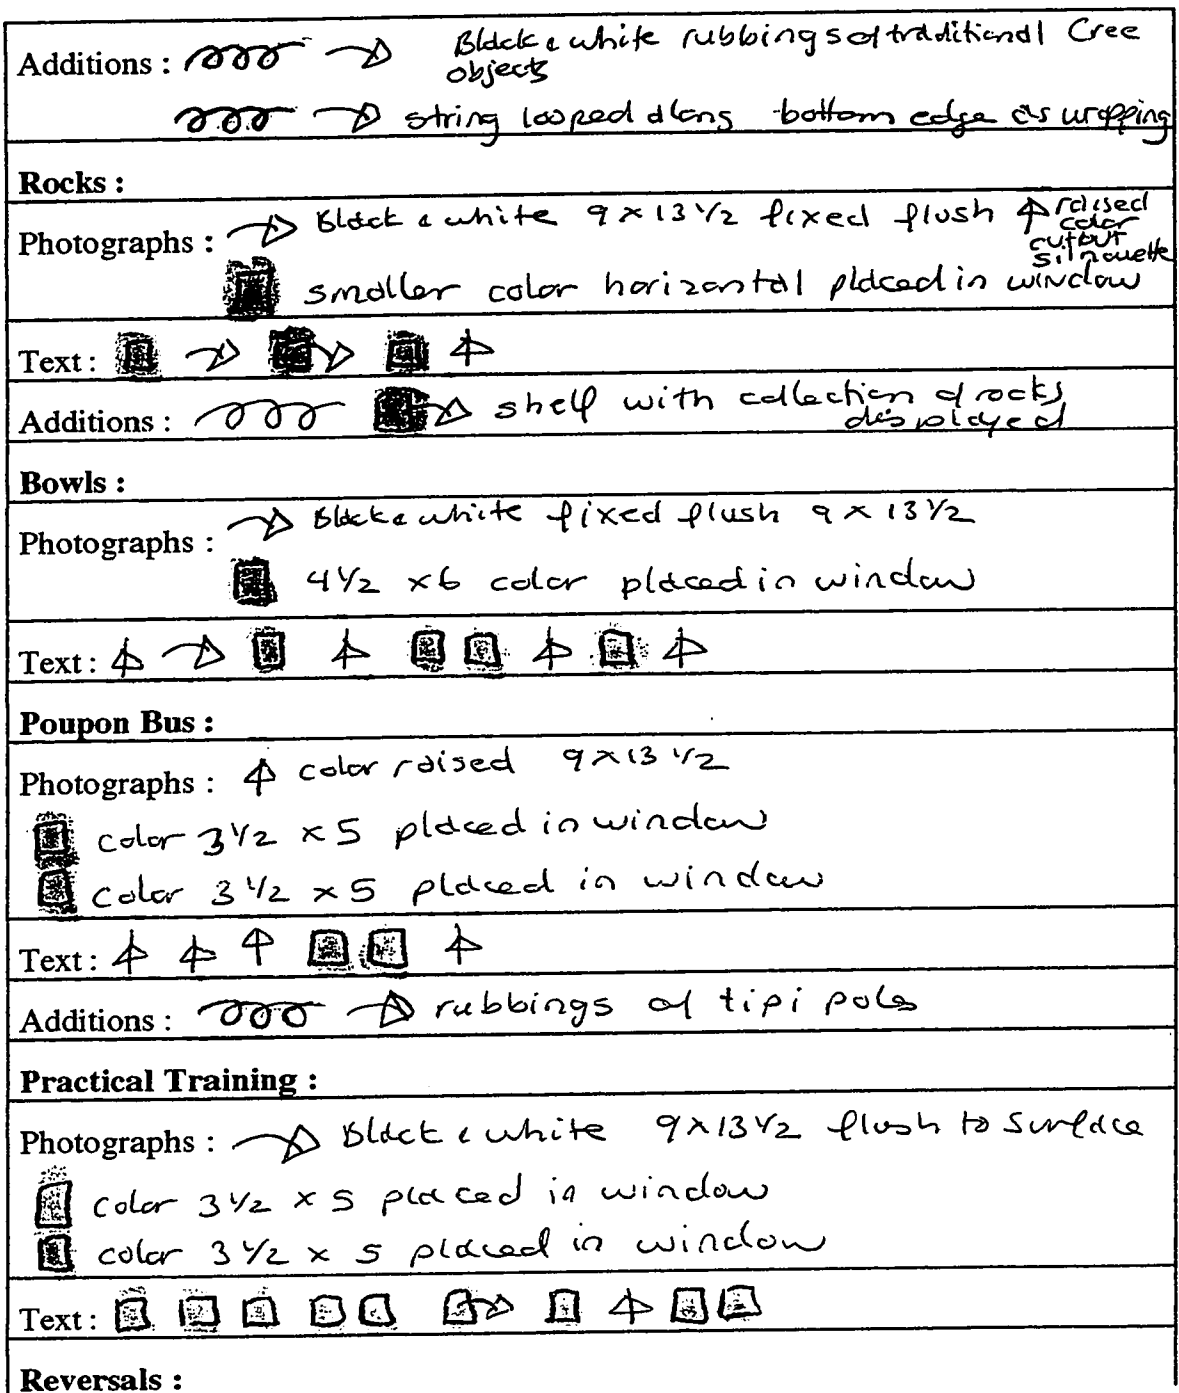 Additions : Black & white rubbings of traditional Cree
objects
string looped along bottom edge as wrapping
Rocks :
Photographs : Black & white 9 x 13 1/2 fixed flush raised
color
cutout
silhouette
smaller color horizontal placed in window
Text :
Additions : shelf with collection of rocks
displayed
Bowls :
Photographs : Black & white fixed flush 9 x 13 1/2
4 1/2 x 6 color placed in window
Text :
Poupon Bus :
Photographs : color raised 9 x 13 1/2
color 3 1/2 x 5 placed in window
color 3 1/2 x 5 placed in window
Text :
Additions : rubbings of tipi poles
Practical Training :
Photographs : Black & white 9 x 13 1/2 flush to surface
color 3 1/2 x 5 placed in window
color 3 1/2 x 5 placed in window
Text :
Reversals :